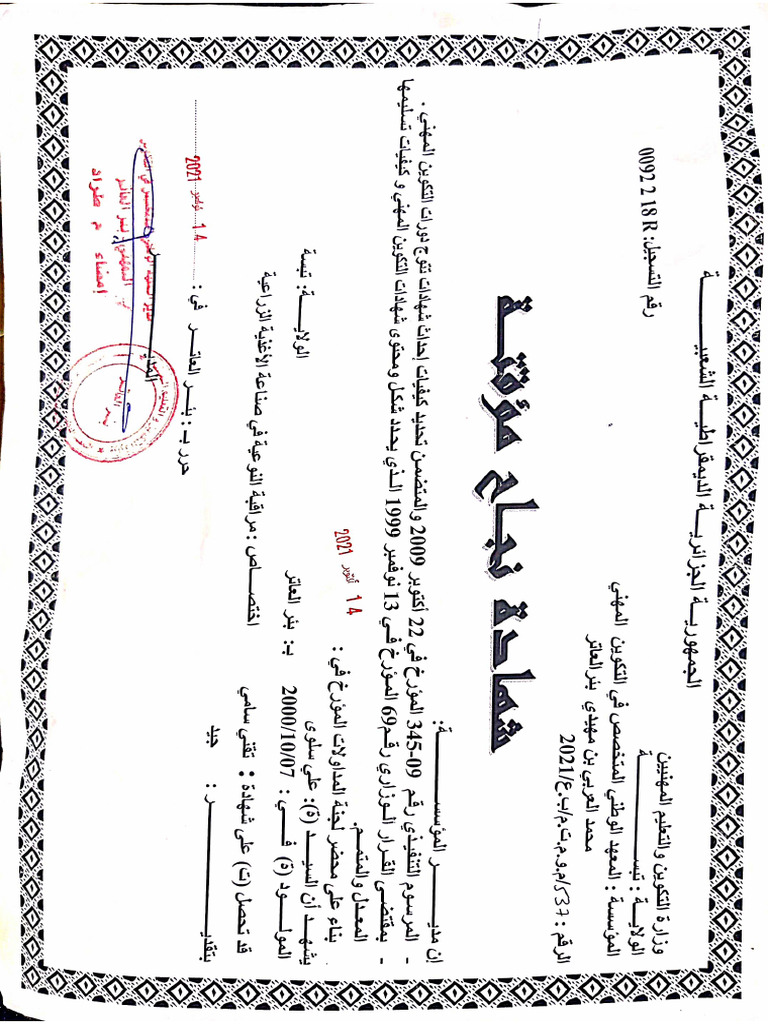 الجمهوريـة الجزائريـــة الديمقراطيـة الشعبيـــــــــة
وزارة التكوين والتعليم المهنيين
الولايـة : تبســــــــة
المؤسسة : المعهد الوطني المتخصص في التكوين المهني
محمد العربي بن مهيدي بئر العاتر
الرقم : 537/م.و.م.ت.م/ب.ع/2021
رقم التسجيل: 0092 2 18 R
شهادة نجاح مؤقتـة
إن مديــــــر المؤسســـــــــة:
- المرسوم التنفيذي رقم 09-345 المؤرخ في 22 أكتوبر 2009 والمتضمن تحديد كيفيات إحداث شهادات تتوج دورات التكوين المهني .
- بمقتضى القرار الوزاري رقم 69 المؤرخ في 13 نوفمبر 1999 الذي يحدد شكل ومحتوى شهادات التكوين المهني و كيفيات تسليمها
المعدل والمتمم.
بناء على محضر لجنة المداولات المؤرخ في : 14 أكتوبر 2021
يشهد أن السيد (ة): علي سلوى
المولـــود (ة) فــــي : 2000/10/07 بـ: بئر العاتر الولايـــة: تبسة
قد تحصل (ت) على شهادة : تقني سامي اختصــاص : مراقبة النوعية في صناعة الأغذية الزراعية
بتقديــــــــــر : جيد
حرر بـ: بئـر العاتـــر في : 14 نوفمبر 2021
المديـــــر
بئر العاتر
إمضاء م طراد